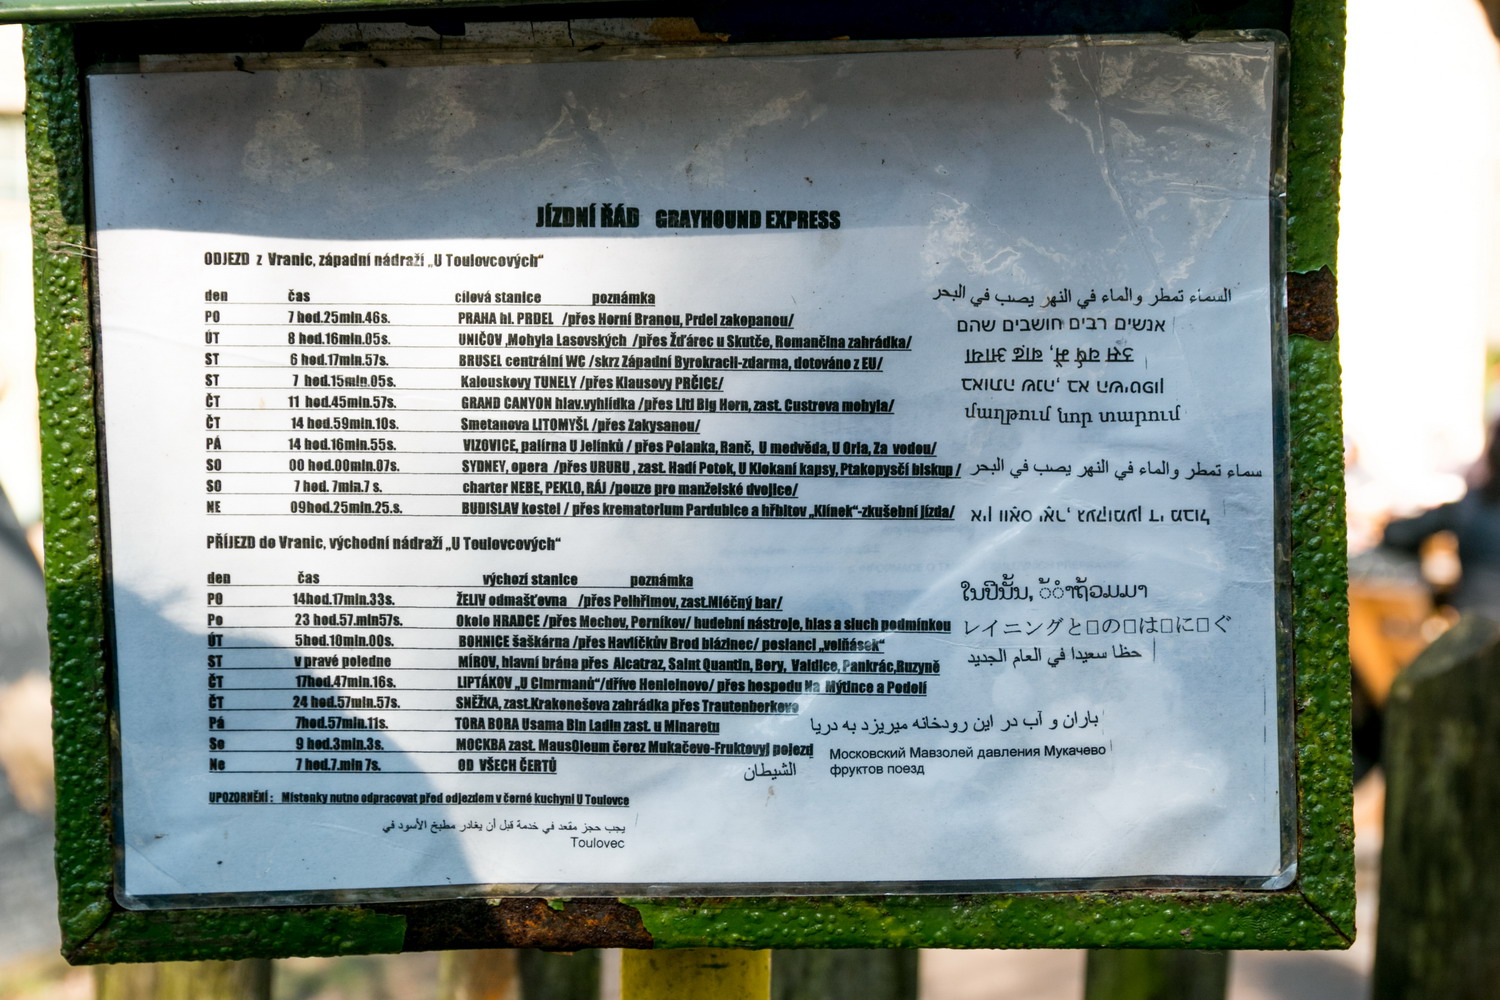 JÍZDNÍ ŘÁD GRAYHOUND EXPRESS
ODJEZD z Vranic, západní nádraží „U Toulovcových“
den čas cílová stanice poznámka
PO 7 hod.25min.46s. PRAHA hl. PRDEL /přes Horní Branou, Prdel zakopanou/
ÚT 8 hod.16min.05s. UNIČOV ,Mohyla Lasovských /přes Žďárec u Skutče, Romančina zahrádka/
ST 6 hod.17min.57s. BRUSEL centrální WC /skrz Západní Byrokracii-zdarma, dotováno z EU/
ST 7 hod.15min.05s. Kalouskovy TUNELY /přes Klausovy PRČICE/
ČT 11 hod.45min.57s. GRAND CANYON hlav.vyhlídka /přes Litl Big Horn, zast. Custrova mohyla/
ČT 14 hod.59min.10s. Smetanova LITOMYŠL /přes Zakysanou/
PÁ 14 hod.16min.55s. VIZOVICE, palírna U Jelínků / přes Polanka, Ranč, U medvěda, U Orla, Za vodou/
SO 00 hod.00min.07s. SYDNEY, opera /přes URURU , zast. Hadí Potok, U Klokaní kapsy, Ptakopysčí biskup /
SO 7 hod. 7min.7 s. charter NEBE, PEKLO, RÁJ /pouze pro manželské dvojice/
NE 09hod.25min.25.s. BUDISLAV kostel / přes krematorium Pardubice a hřbitov „Klínek“-zkušební jízda/
السماء تمطر والماء في النهر يصب في البحر
אנשים רבים חושבים שהם
उस वर्ष में, बाढ़ आया
באותה שנה, בא השיטפון
سماء تمطر والماء في النهر يصب في البحر
אין וואס יאר, געקומען די מבול
PŘÍJEZD do Vranic, východní nádraží „U Toulovcových“
den čas výchozí stanice poznámka
PO 14hod.17min.33s. ŽELIV odmašťovna /přes Pelhřimov, zast.Mléčný bar/
Po 23 hod.57.min57s. Okolo HRADCE /přes Mechov, Perníkov/ hudební nástroje, hlas a sluch podmínkou
ÚT 5hod.10min.00s. BOHNICE šaškárna /přes Havlíčkův Brod blázinec/ poslanci „volňásek“
ST v pravé poledne MÍROV, hlavní brána přes Alcatraz, Saint Quantin, Bory, Valdice, Pankrác,Ruzyně
ČT 17hod.47min.16s. LIPTÁKOV „U Cimrmanů“/dříve Henleinovo/ přes hospodu Na Mýtince a Podolí
ČT 24 hod.57min.57s. SNĚŽKA, zast.Krakonošova zahrádka přes Trautenberkovo
Pá 7hod.57min.11s. TORA BORA Usama Bin Ladin zast. u Minaretu
So 9 hod.3min.3s. MOCKBA zast. MausOleum čerez Mukačevo-Fruktovyj pojezd
Ne 7 hod.7.min 7s. OD VŠECH ČERTŮ
レイニングと□の□は□に□ぐ
حظا سعيدا في العام الجديد
باران و آب در این رودخانه میریزد به دریا
Московский Мавзолей давления Мукачево
фруктов поезд
الشيطان
UPOZORNĚNÍ : Místenky nutno odpracovat před odjezdem v černé kuchyni U Toulovce
يجب حجز مقعد في خدمة قبل أن يغادر مطبخ الأسود في
Toulovec